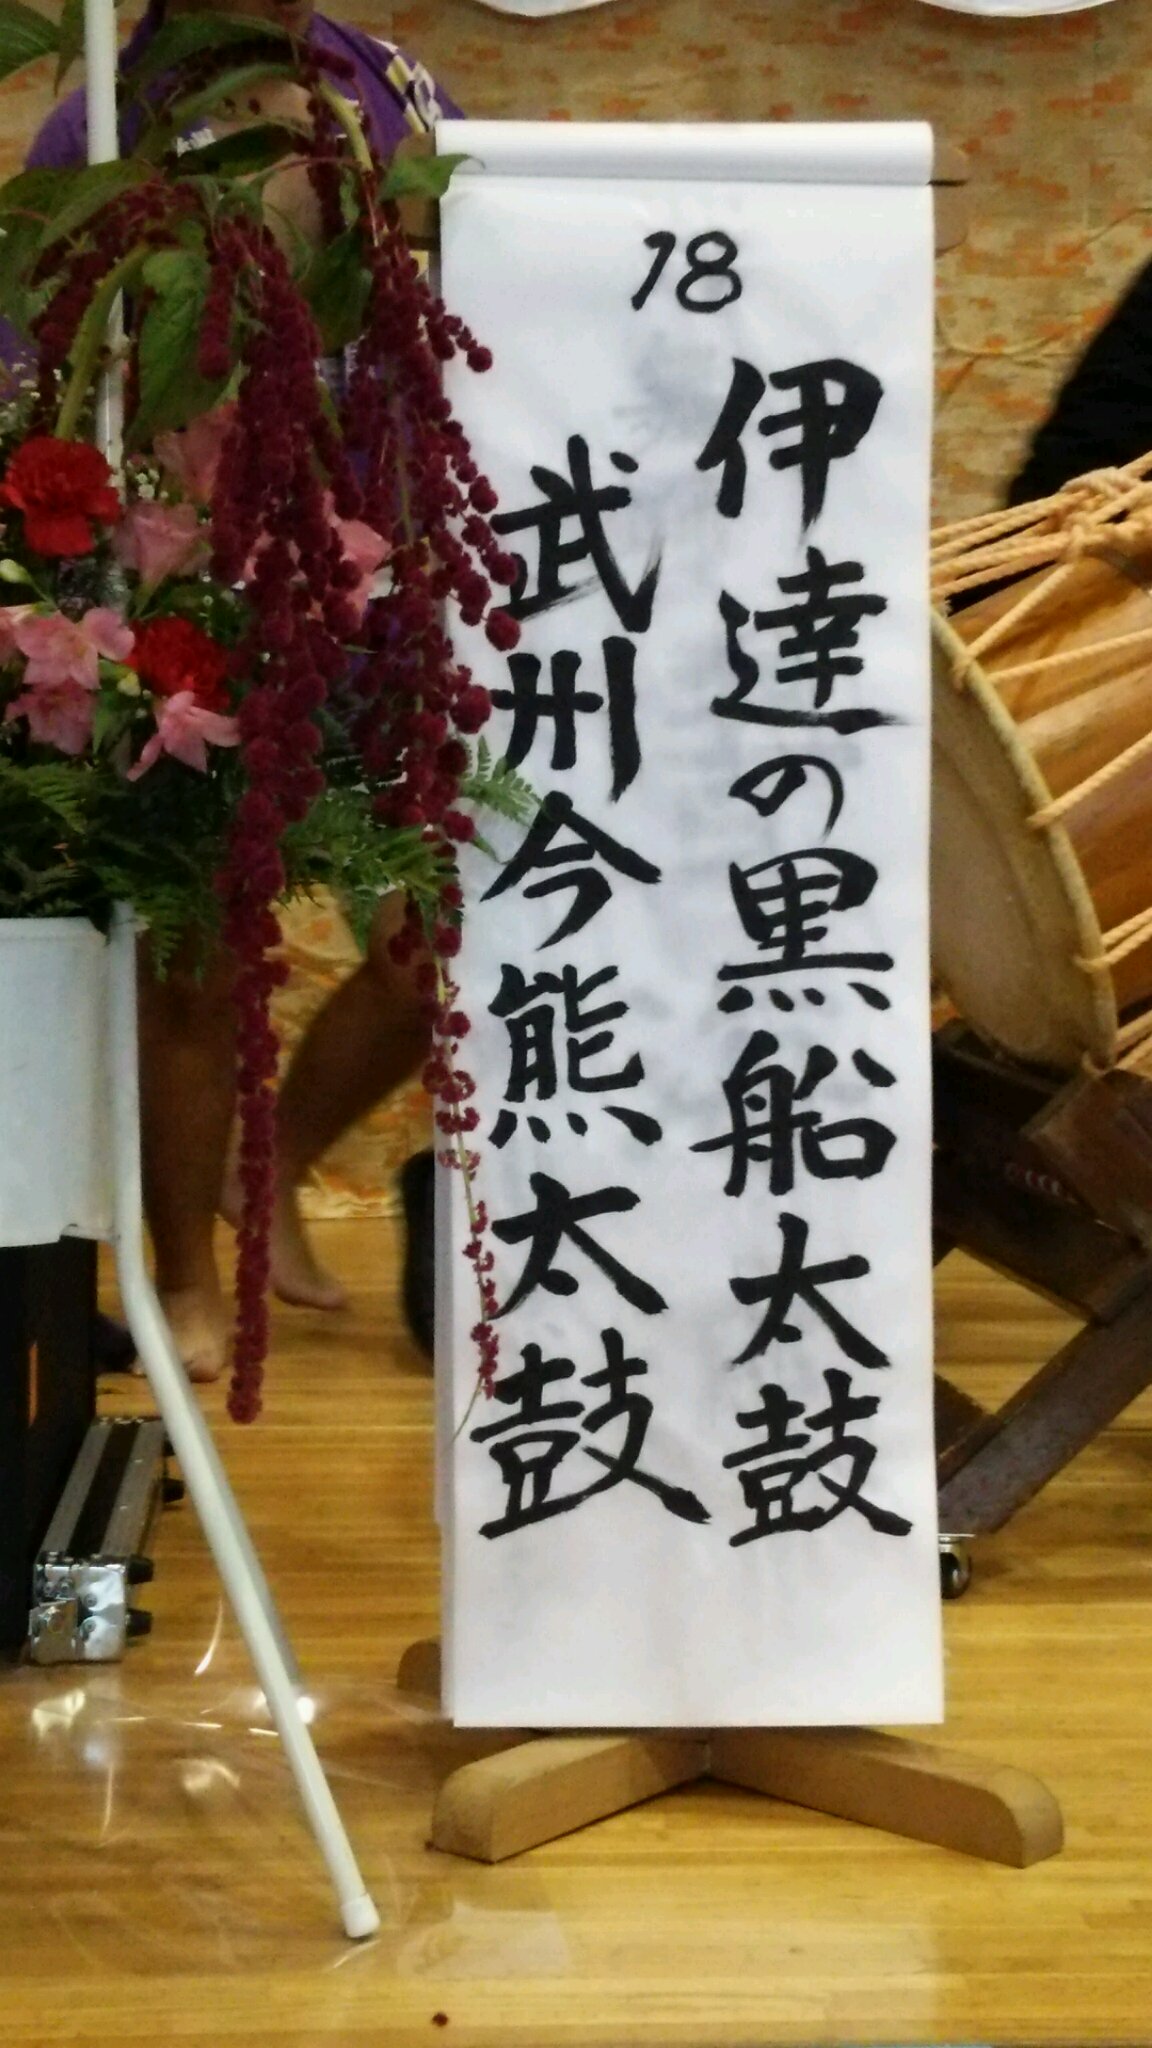 18
伊達の黒船太鼓
武州今熊太鼓